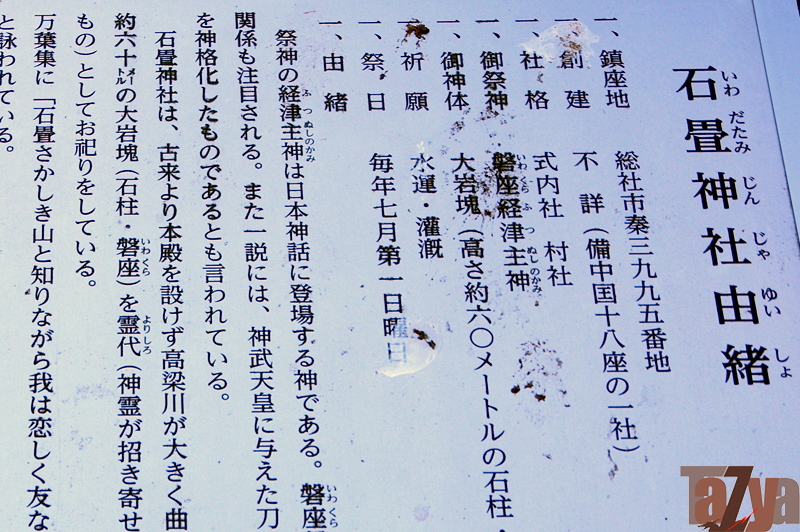 石畳神社由緒
いわ だたみ じん じゃ ゆい しょ
一、鎮座地 総社市秦三九九五番地
一、創建 不詳（備中国十八座の一社）
一、社格 式内社 村社
一、御祭神 磐座経津主神
いわくらふつぬしのかみ
一、御神体 大岩塊（高さ約六〇メートルの石柱・
一、祈願 水運・灌漑
一、祭日 毎年七月第一日曜日
一、由緒
祭神の経津主神は日本神話に登場する神である。磐座
ふつぬしのかみ いわくら
関係も注目される。また一説には、神武天皇に与えた刀
を神格化したものであるとも言われている。
石畳神社は、古来より本殿を設けず高梁川が大きく曲
約六十㍍の大岩塊（石柱・磐座）を霊代（神霊が招き寄せ
いわくら よりしろ
もの）としてお祀りをしている。
万葉集に「石畳さかしき山と知りながら我は恋しく友な
と詠われている。
TaZya